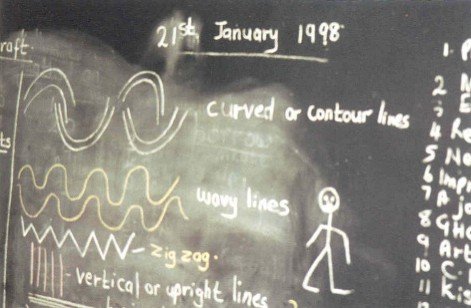 21st, January 1998
raft.
curved or contour lines
ts
wavy lines
zig zag.
vertical or upright lines
1. P
2 M
3
4 Re
5 No
6 Impr
7 A jo
8 GHa
9 Art
10 C.
11 Kig